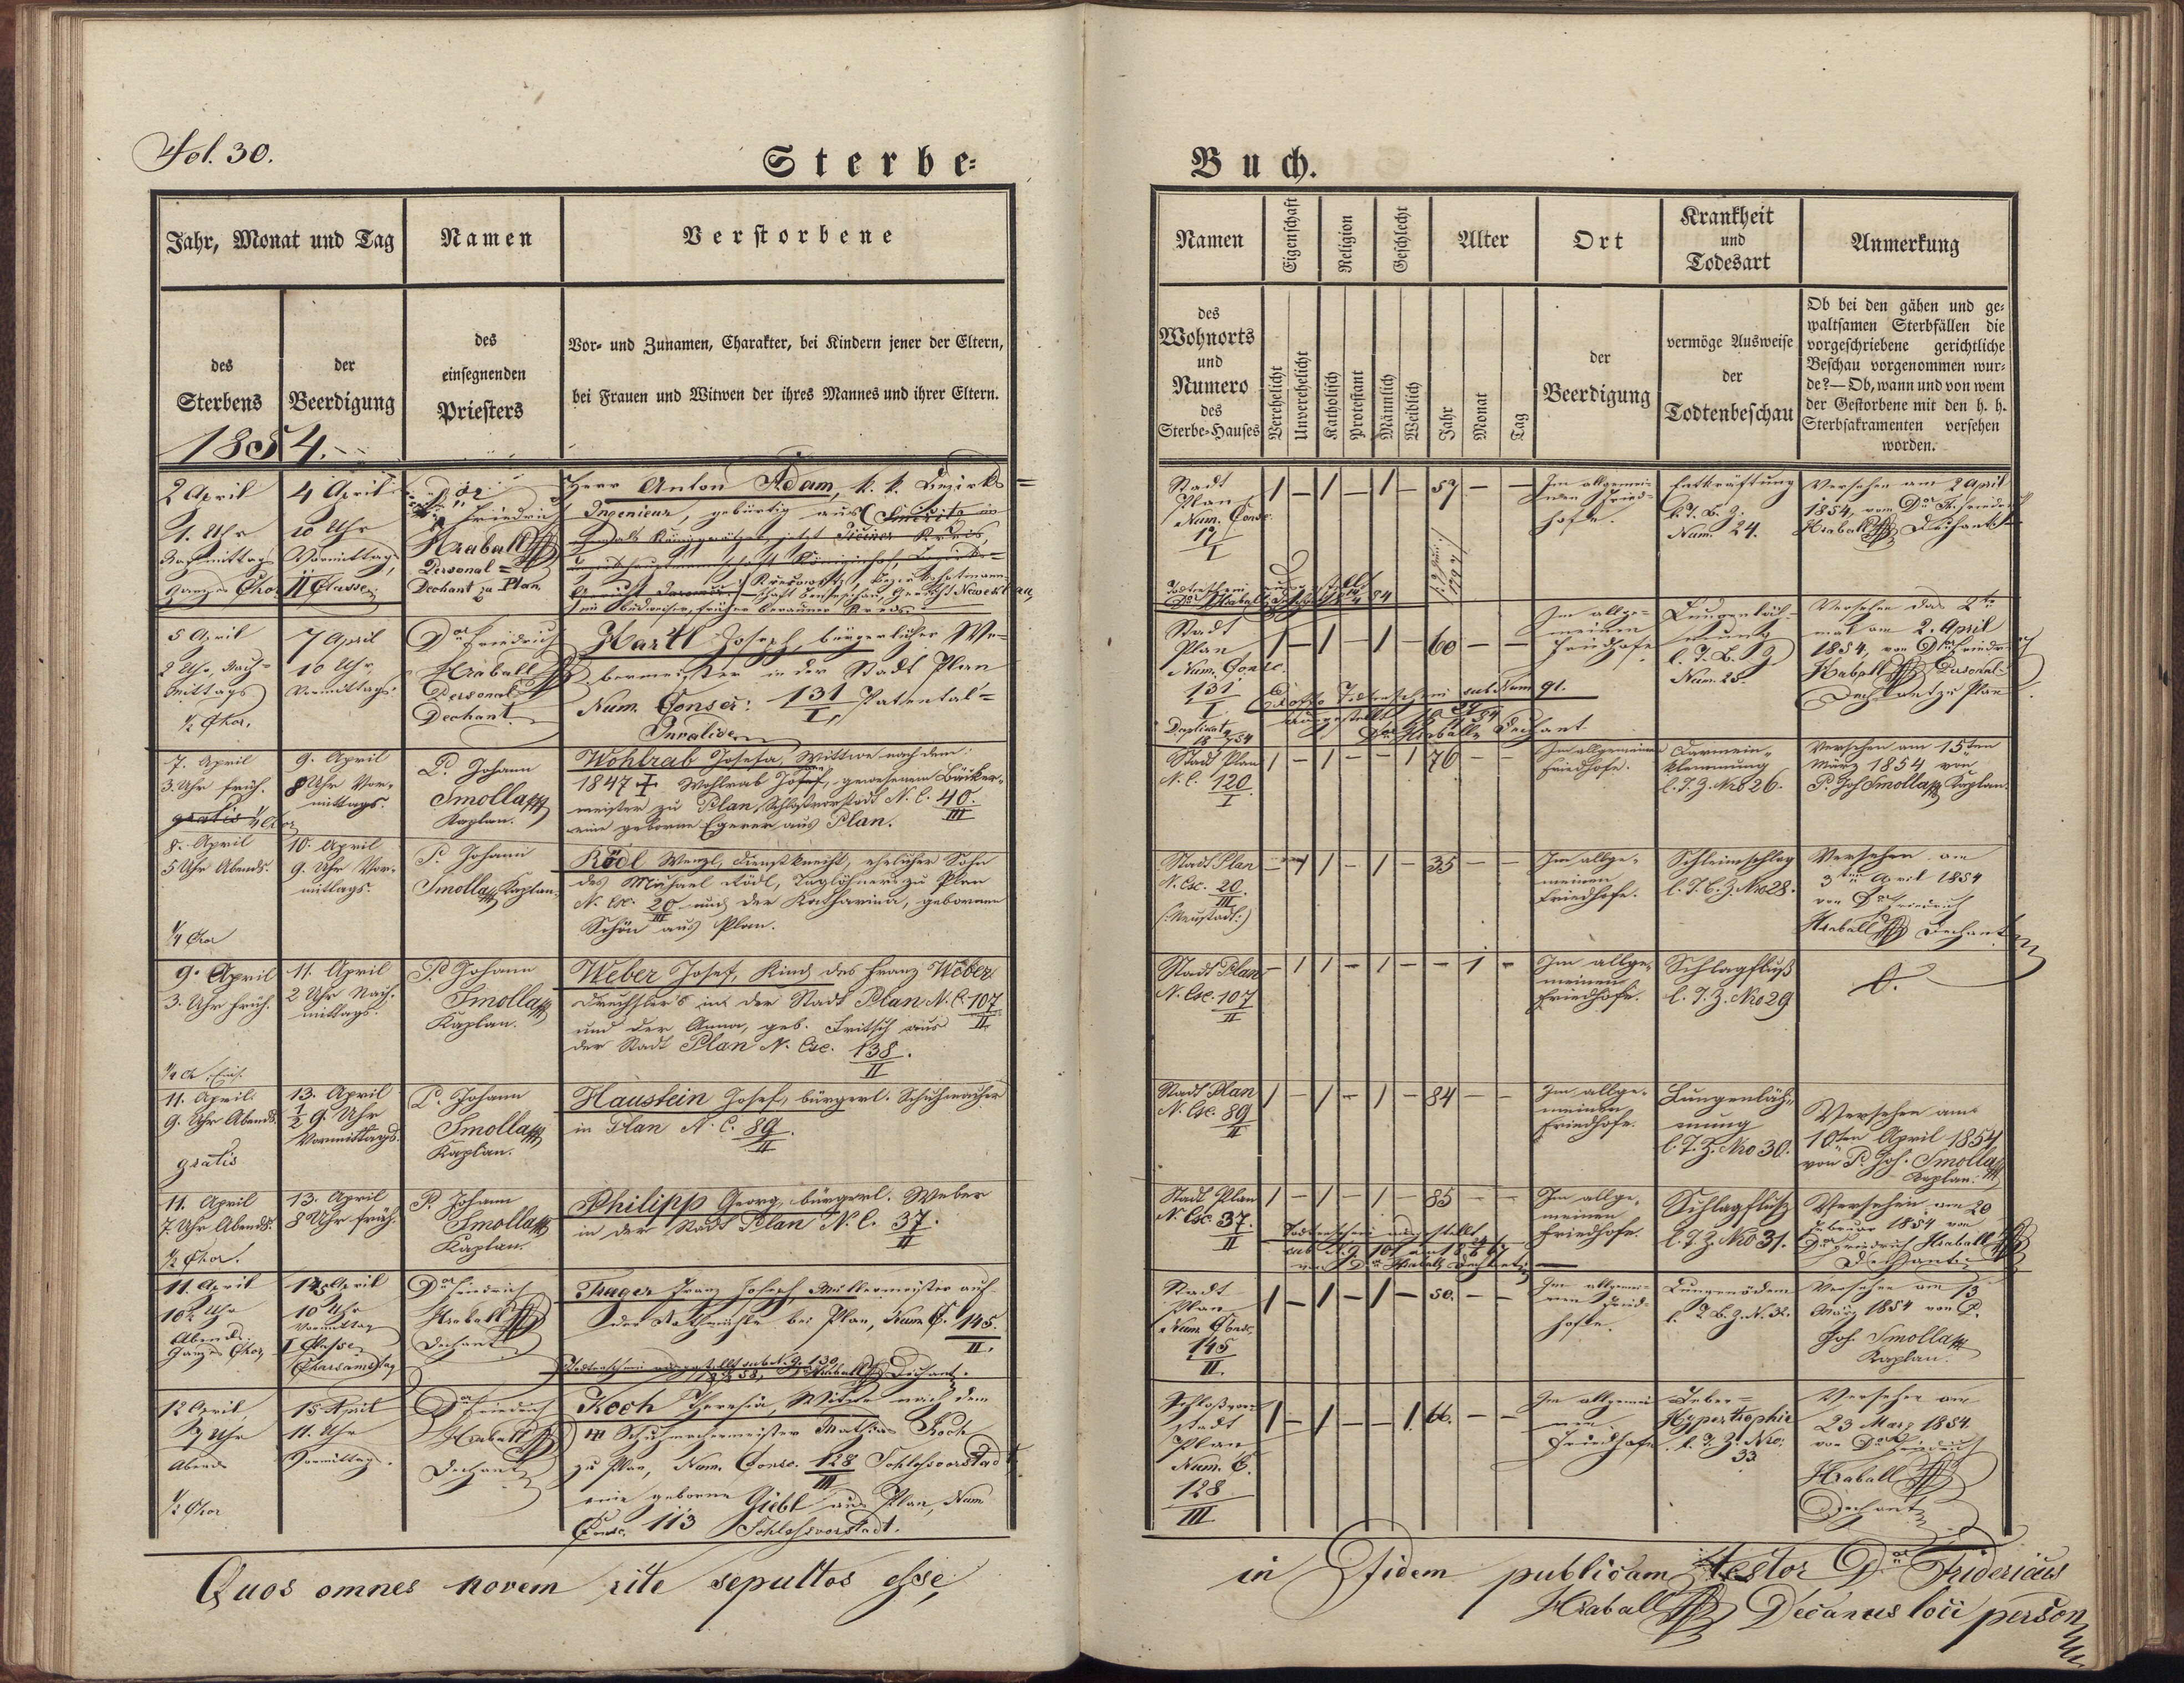 Fol. 30.
Sterbe=
Jahr, Monat und Tag
Namen
Verstorbene
des
Sterbens
der
Beerdigung
des
einsegnenden
Priesters
Vor- und Zunamen, Charakter, bei Kindern jener der Eltern,
bei Frauen und Witwen der ihres Mannes und ihrer Eltern.
1854.
2 April
1. Uhr
Nachmittag
Ganzer Chor
4 April
10 Uhr
Vormittag
II Classe
Friedrich
Hraball
Personal=
Dechant zu Plan
Herr Anton Adam, k. k. Bezirks=
Ingenieur, gebürtig aus
5 April
2 Uhr Nach=
mittags
1/2 Chor.
7 April
10 Uhr
Vormittags
Dar Friedrich
Hraball
Personal
Dechant
Hartl Joseph, bürgerlicher We=
bermeister in der Stadt Plan
Num. Conscr: 131/I, Patental=
Invaliden
7. April
3 Uhr früh.
gratis 1/4 Chor
9. April
8 Uhr Vor=
mittags.
P. Johann
Smolla
Kaplan.
Wohlrab Josefa, Wittwe nach dem
1847 † Wohlrab Josef, gewesenem Bäcker=
meister zu Plan, Schloßvorstadt N. C. 40/III
eine geborne Egerer aus Plan.
8. April
5 Uhr Abends.
1/4 Chor
10. April
9. Uhr Vor=
mittags.
P. Johann
Smolla Kaplan.
Rödl Wenzl, Dienstknecht, ehelicher Sohn
des Michael Rödl, Taglöhners zu Plan
N. Csc. 20/III und der Katharina, gebornen
Schön aus Plan.
9. April
3. Uhr früh.
11. April
2 Uhr Nach=
mittags.
P. Johann
Smolla
Kaplan.
Weber Josef, Kind des Franz Weber
Drechsler's in der Stadt Plan N. C. 107/II
und der Anna, geb. Fritsch aus
der Stadt Plan N. Csc. 138/II.
11. April
9. Uhr Abends.
gratis
13. April
1/2 9. Uhr
Vormittags.
P. Johann
Smolla
Kaplan.
Haustein Josef, bürgerl. Schuhmacher
in Plan N. C. 89/II.
11. April
7. Uhr Abends.
1/2 Chor.
13. April
8 Uhr früh.
P. Johann
Smolla
Kaplan.
Philipp Georg, bürgerl. Weber
in der Stadt Plan N. C. 37/II.
11. April
10 Uhr
Abends
Ganzer Chor
10 Uhr
Vormittag
I Classe
Charsamstag
Dar Friedrich
Hraball
Dechant
Franz Joseph, Müllermeister auf
der Rathmühle bei Plan, Num. C. 145/II.
12 April
7 Uhr
Abends
1/2 Chor
15 April
11. Uhr
Vormittag.
Dar Friedrich
Hraball
Dechant
Koch Theresia, Witwe nach dem
Schuhmachermeister Mathias Koch
zu Plan, Num. Consc. 128/III Schlossvorstadt
eine geborne Giebl aus Plan, Num
Consc. 113 Schlossvorstadt.
Quos omnes novem rite sepultos esse,
Buch.
Namen
Eigenschaft
Religion
Geschlecht
Alter
Ort
Krankheit
und
Todesart
Anmerkung
des
Wohnorts
und
Numero
des
Sterbe=Hauses
Verehelicht
Unverehelicht
Katholisch
Protestant
Männlich
Weiblich
Jahr
Monat
Tag
der
Beerdigung
vermöge Ausweise
der
Todtenbeschau
Ob bei den gähen und ge=
waltsamen Sterbfällen die
vorgeschriebene gerichtliche
Beschau vorgenommen wur=
de?—Ob, wann und von wem
der Gestorbene mit den h. h.
Sterbsakramenten versehen
worden.
Stadt
Plan
Num. Consc.
17/I
1 – 1 – 1 – 57 – –
Im allgemei=
nen Fried=
hofe.
Entkräftung
l. T. B. Z.
Num. 24.
Versehen am 2 April
1854, vom Dar Friedrich
Hraball Dechant
Stadt
Plan
Num. Consc.
131/I
1 – 1 – 1 – 60 – –
Im allge=
meinen
Friedhofe
Lungenläh=
mung
l. T. B. Z.
Num. 25.
Versehen das 2te
mal am 2. April
1854, von Dar Friedrich
Hraball Personal
Dechant zu Plan.
Stadt Plan
N. C. 120/I
1 – 1 – – 1 76 – –
Im allgemeinen
Friedhofe.
Darmein=
klemmung
l. T. Z. Nro 26.
Versehen am 15ten
März 1854 von
P. Joh Smolla Kaplan.
Stadt Plan
N. Csc. 20/III
(:Neustadt:)
– 1 1 – 1 – 35 – –
Im allge=
meinen
Friedhofe.
Schleimschlag
l. T. B. Z. Nro 28.
Versehen am
3ten April 1854
von Dar Friedrich
Hraball Dechant
Stadt Plan
N. Csc. 107/II
– 1 1 – 1 – – 1 –
Im allge=
meinen
Friedhofe.
Schlagfluß
l. T. Z. Nro 29
Stadt Plan
N. Csc. 89/II
1 – 1 – 1 – 84 – –
Im allge=
meinen
Friedhofe.
Lungenläh=
mung
l. T. Z. Nro 30.
Versehen am
10ten April 1854
von P. Joh. Smolla
Kaplan.
Stadt Plan
N. Csc. 37/II
1 – 1 – 1 – 85 – –
Im allge=
meinen
Friedhofe.
Schlagfluß
l. T. Z. Nro 31.
Versehen am 20
Februar 1854 von
Dar Friedrich Hraball
Dechant
Stadt
Plan
Num. Consc.
145/II.
1 – 1 – 1 – 50. – –
Im allgemei=
nen Fried=
hofe.
Lungenödem
Versehen am 13
März 1854 von P.
Joh. Smolla
Kaplan.
Schloßvor=
stadt
Plan
Num. C.
128/III
1 – 1 – – 1. 66. – –
Im allgemei=
nen
Friedhofe
Leber=
Hypertrophie
l. T. Z. Nro.
33.
Versehen am
23 März 1854.
von Dar Friedrich
Hraball
Dechant
in Fidem publicam testor Dar Fridericus
Hraball Decanus loci person